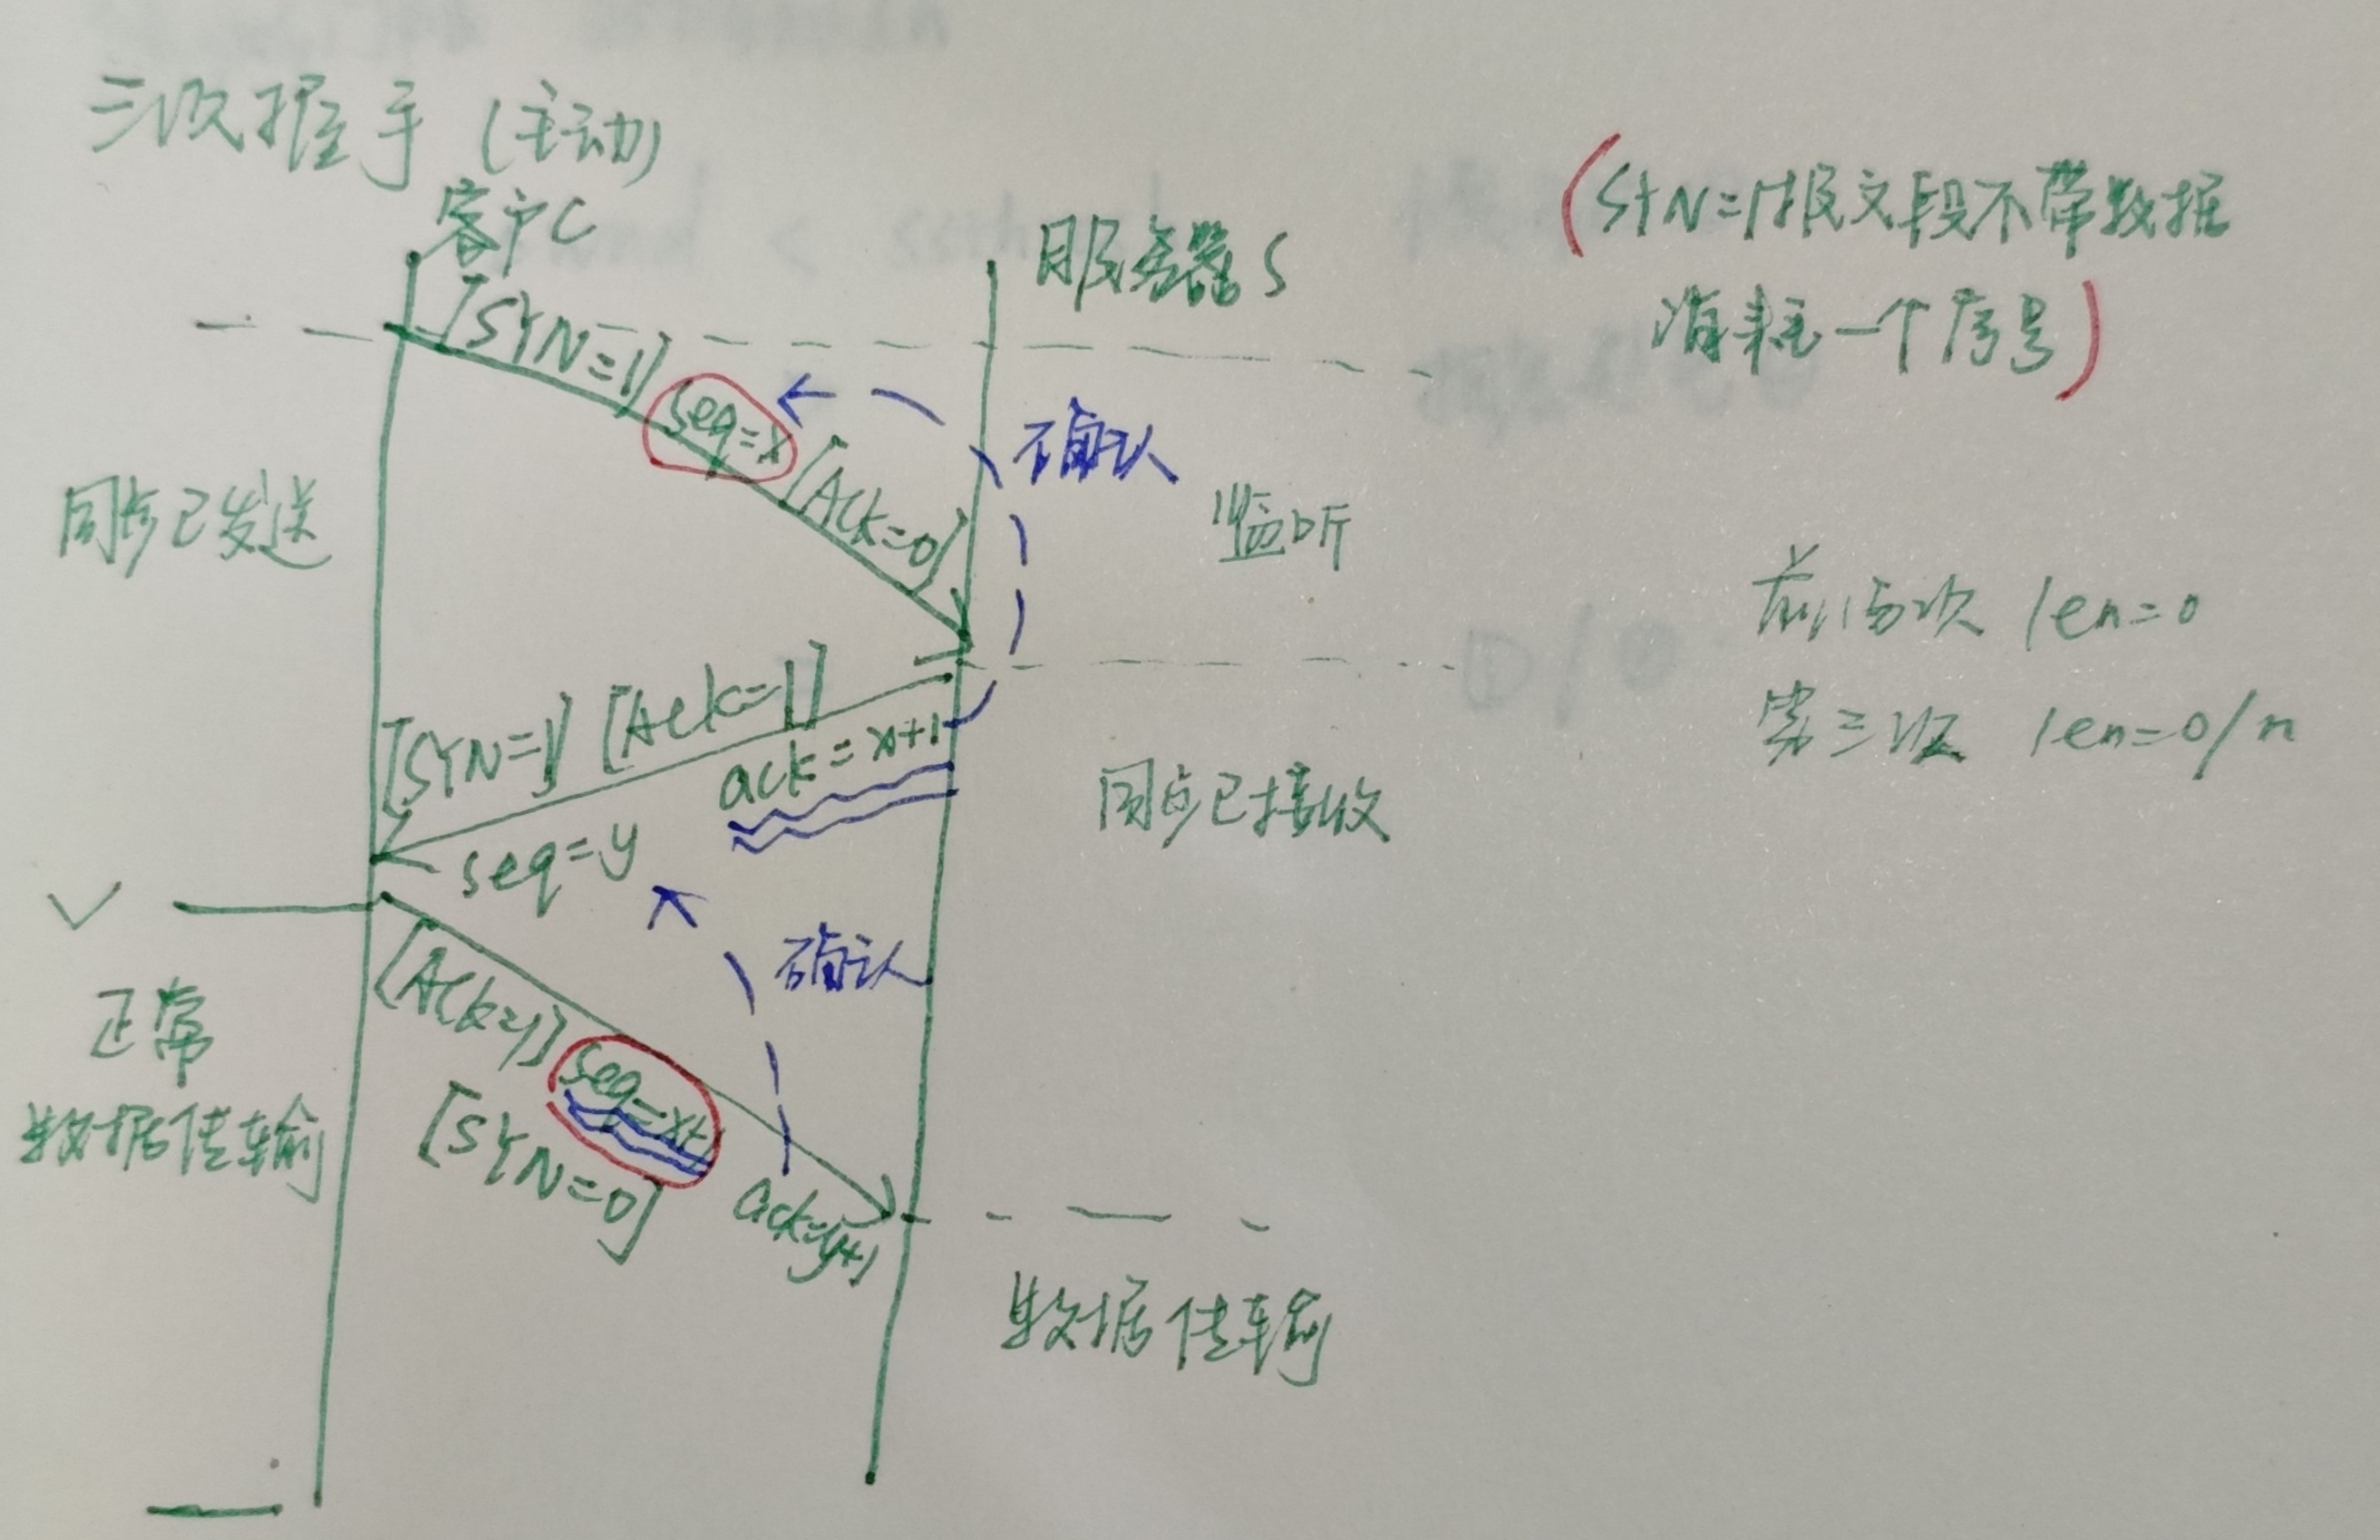 三次握手 (主动)
客户C
服务器S
(SYN=1报文段不带数据
消耗一个序号)
[SYN=1] seq=x [ACK=0]
确认
同步已发送
监听
前两次 len=0
第三次 len=0/n
[SYN=1] [ACK=1]
ack=x+1
seq=y
同步已接收
确认
[ACK=1] seq=x+1
[SYN=0]
ack=y+1
正常
数据传输
数据传输